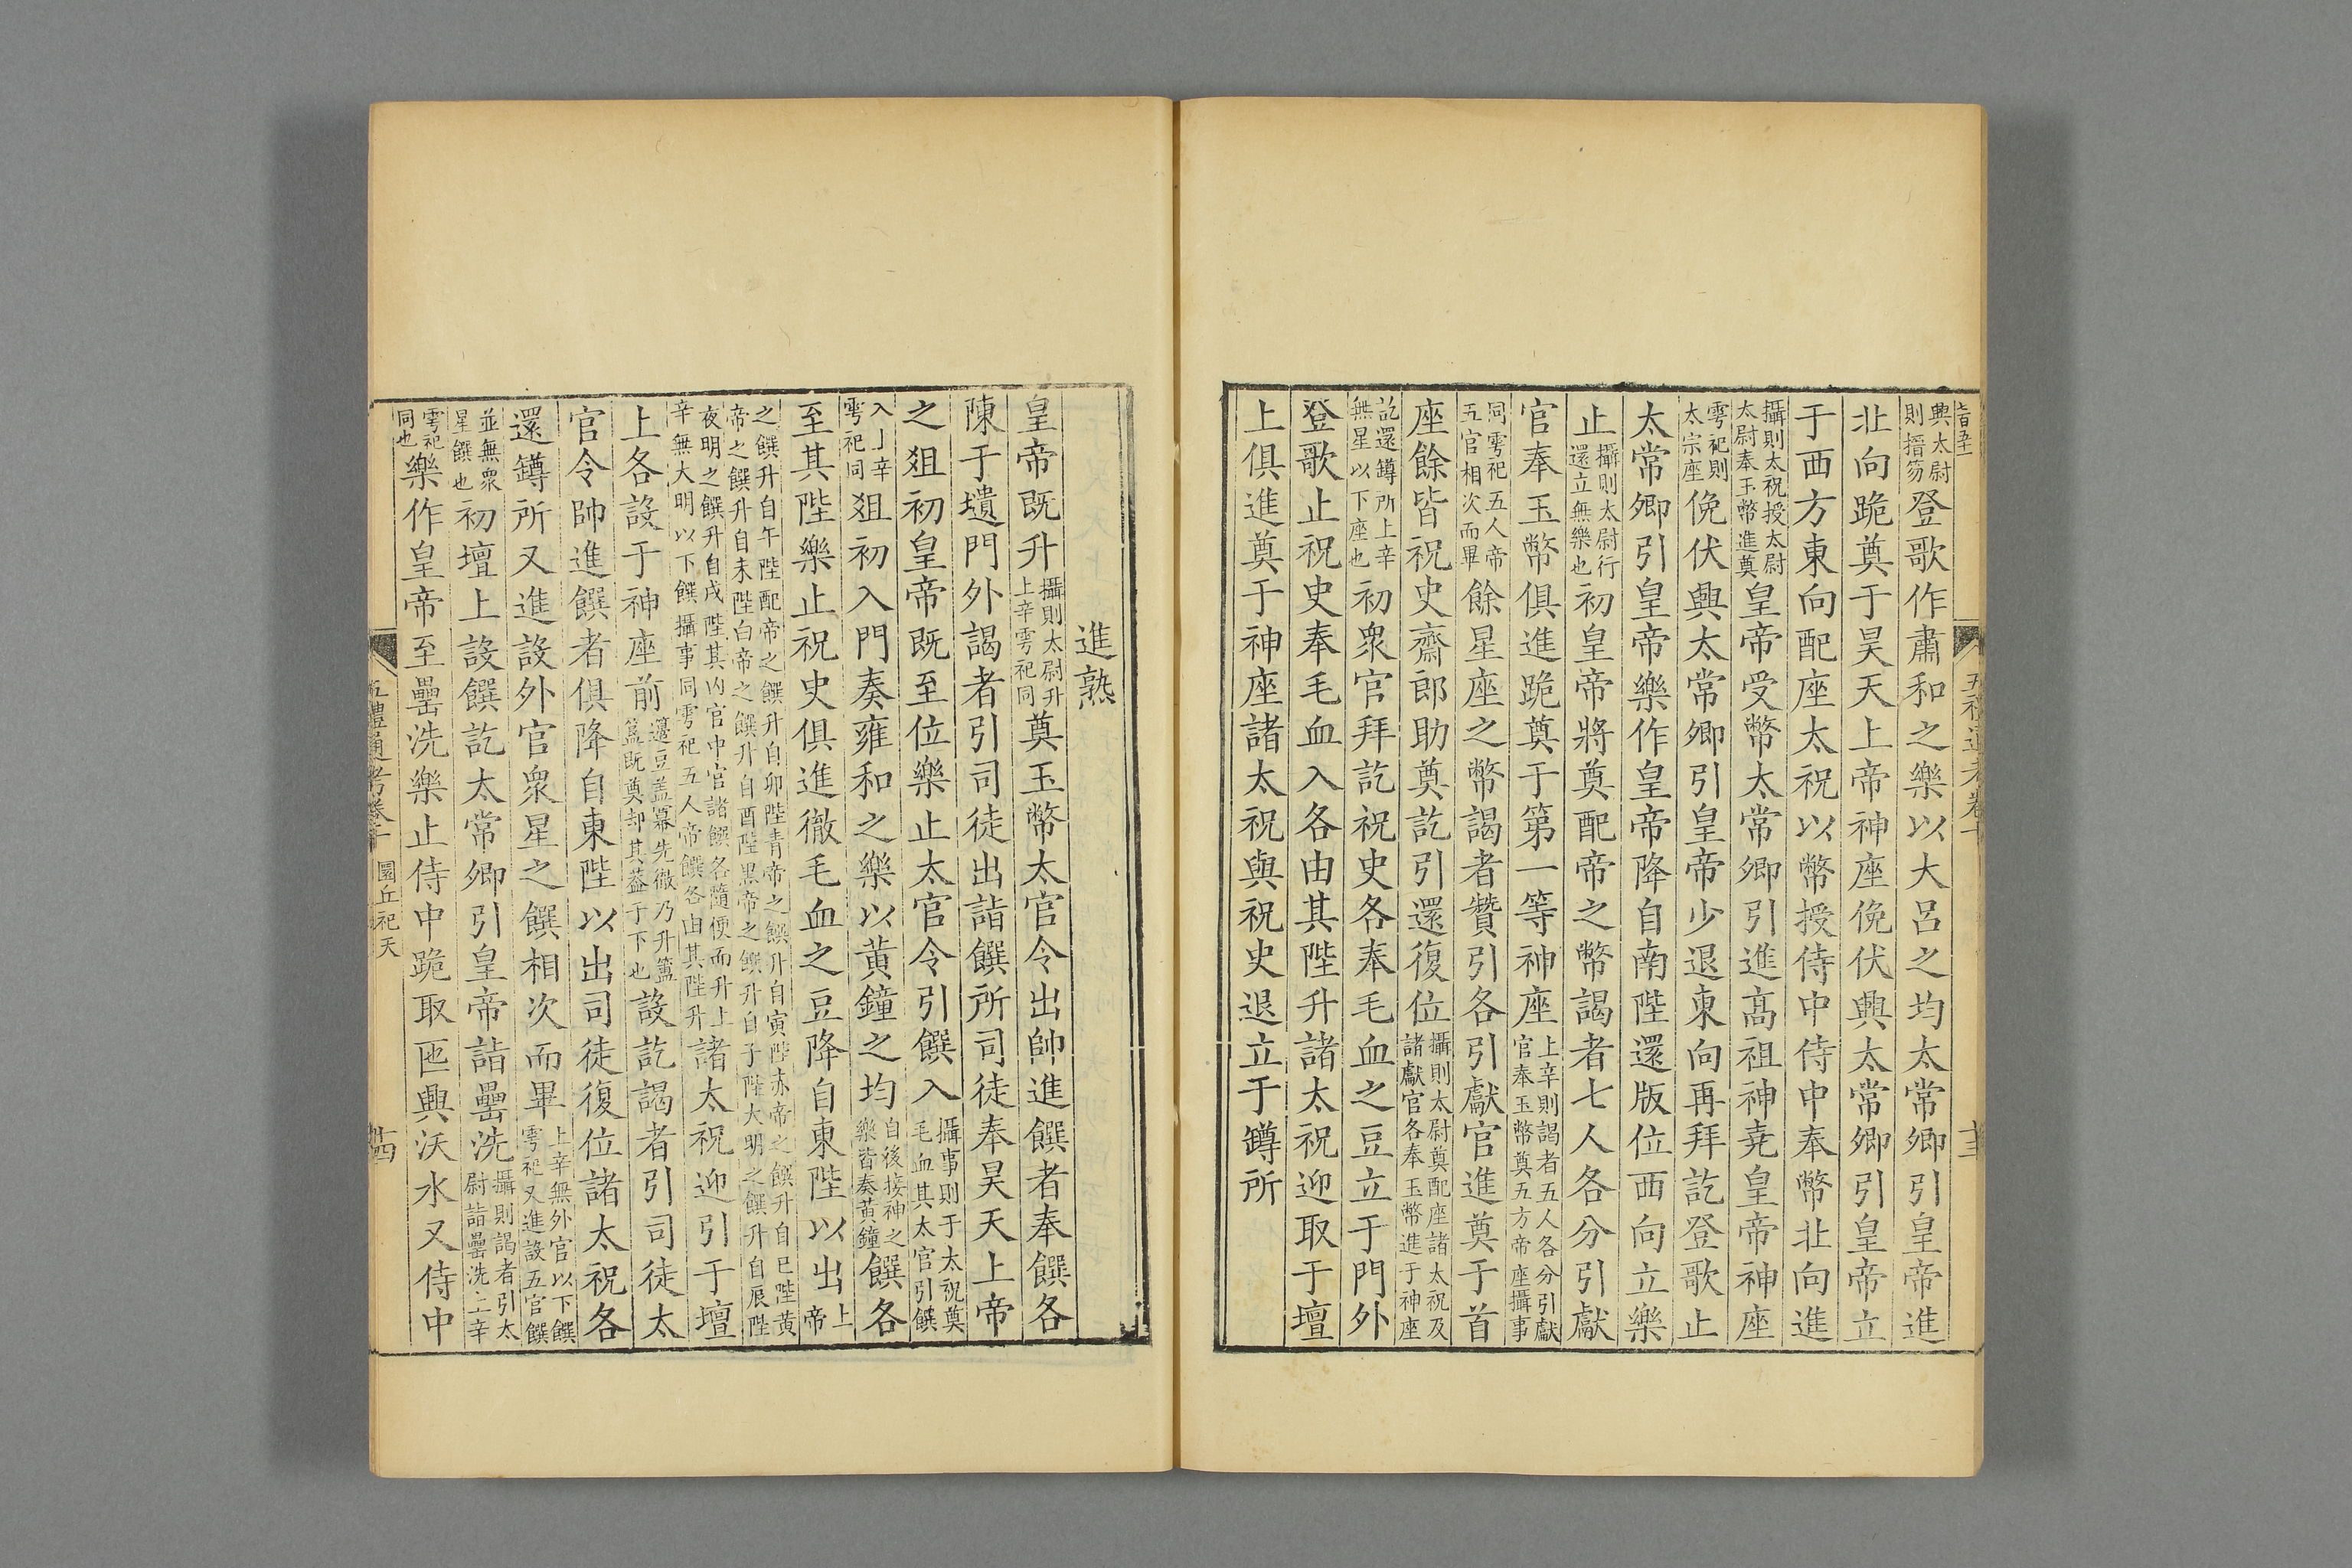 興太尉則搢笏登歌作肅和之樂以大呂之均太常卿引皇帝進
北向跪奠于昊天上帝神座俛伏興太常卿引皇帝立
于西方東向配座太祝以幣授侍中侍中奉幣北向進
攝則太祝授太尉太尉奉玉幣進奠皇帝受幣太常卿引進高祖神堯皇帝神座
雩祀則太宗座俛伏興太常卿引皇帝少退東向再拜訖登歌止
太常卿引皇帝樂作皇帝降自南陛還版位西向立樂
止攝則太尉行還立無樂也初皇帝將奠配帝之幣謁者七人各分引獻
官奉玉幣俱進跪奠于第一等神座上辛則謁者五人各分引獻官奉玉幣奠五方帝座攝事
同雩祀五人帝五官相次而畢餘星座之幣謁者贊引各引獻官進奠于首
座餘皆祝史齋郎助奠訖引還復位攝則太尉奠配座諸太祝及諸獻官各奉玉幣進于神座
訖還罇所上辛無星以下座也初衆官拜訖祝史各奉毛血之豆立于門外
登歌止祝史奉毛血入各由其陛升諸太祝迎取于壇
上俱進奠于神座諸太祝與祝史退立于罇所
進熟
皇帝既升攝則太尉升上辛雩祀同奠玉幣太官令出帥進饌者奉饌各
陳于壝門外謁者引司徒出詣饌所司徒奉昊天上帝
之俎初皇帝既至位樂止太官令引饌入攝事則于太祝奠毛血其太官引饌
入上辛雩祀同俎初入門奏雍和之樂以黃鐘之均自後接神之樂皆奏黃鐘饌各
至其陛樂止祝史俱進徹毛血之豆降自東陛以出上帝
之饌升自午陛配帝之饌升自卯陛青帝之饌升自寅陛赤帝之饌升自巳陛黃帝之饌升自未陛白帝之饌升自酉陛黑帝之饌升自子陛大明之饌升自辰陛
夜明之饌升自戌陛其內官中官諸饌各隨便而升上辛無大明以下饌攝事同雩祀五人帝饌各由其陛升諸太祝迎引于壇
上各設于神座前籩豆蓋冪先徹乃升簠簋既奠却其蓋于下也設訖謁者引司徒太
官令帥進饌者俱降自東陛以出司徒復位諸太祝各
還罇所又進設外官衆星之饌相次而畢上辛無外官以下饌雩祀又進設五官饌
並無衆星饌也初壇上設饌訖太常卿引皇帝詣罍洗攝則謁者引太尉詣罍洗上辛
雩祀同也樂作皇帝至罍洗樂止侍中跪取匜興沃水又侍中
五禮通考卷十 圜丘祀天
十四